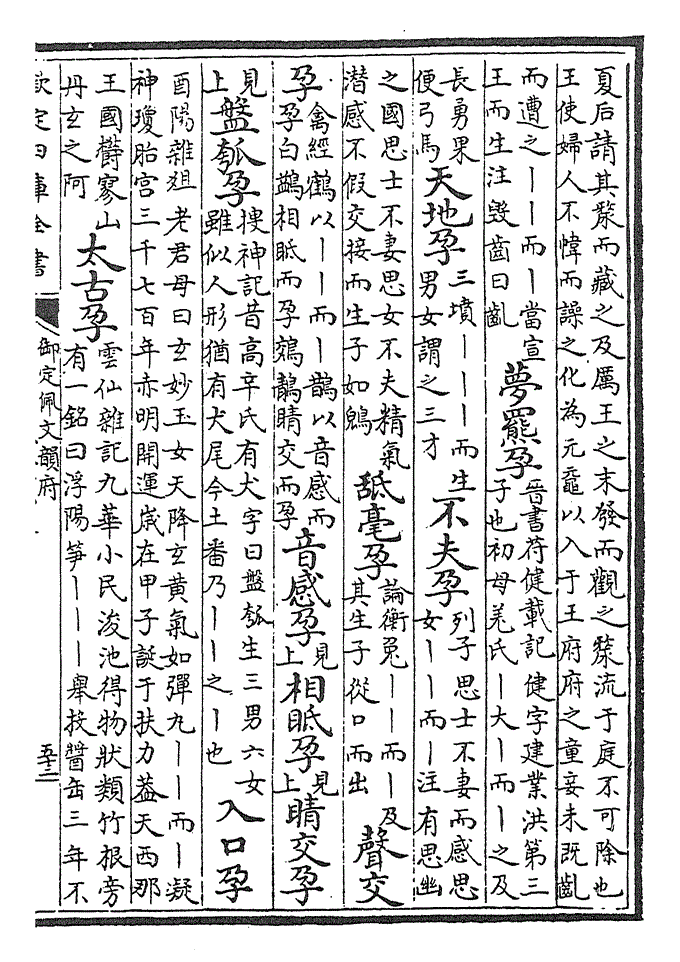 夏后請其漦而藏之及厲王之末發而觀之漦流于庭不可除也
王使婦人不幃而譟之化為元黿以入于王府府之童妾未既齔
而遭之丨丨而丨當宣
王而生注毀齒曰齔
夢羆孕
晉書苻健載記健字建業洪第三
子也初母羌氏丨大丨而丨之及
長勇果
便弓馬
天地孕
三墳丨丨丨而生
男女謂之三才
不夫孕
列子思士不妻而感思
女丨丨而丨注有思幽
之國思士不妻思女不夫精氣
潛感不假交接而生子如鶂
舐毫孕
論衡兔丨丨而丨及
其生子從口而出
聲交
孕
禽經鶴以丨丨而丨鵲以音感而
孕白鷁相眡而孕鵁鶄睛交而孕
音感孕
見
上
相眡孕
見
上
睛交孕
見
上
盤瓠孕
搜神記昔高辛氏有犬字曰盤瓠生三男六女
雖似人形猶有犬尾今土番乃丨丨之丨也
入口孕
酉陽雜俎老君母曰玄妙玉女天降玄黃氣如彈丸丨丨而丨凝
神瓊胎宮三千七百年赤明開運歲在甲子誕于扶力葢天西那
王國欝寥山
丹玄之阿
太古孕
雲仙雜記九華小民浚池得物狀類竹根旁
有一銘曰浮陽筍丨丨丨舉投醬缶三年不
欽定四庫全書
御定佩文韻府
五十二